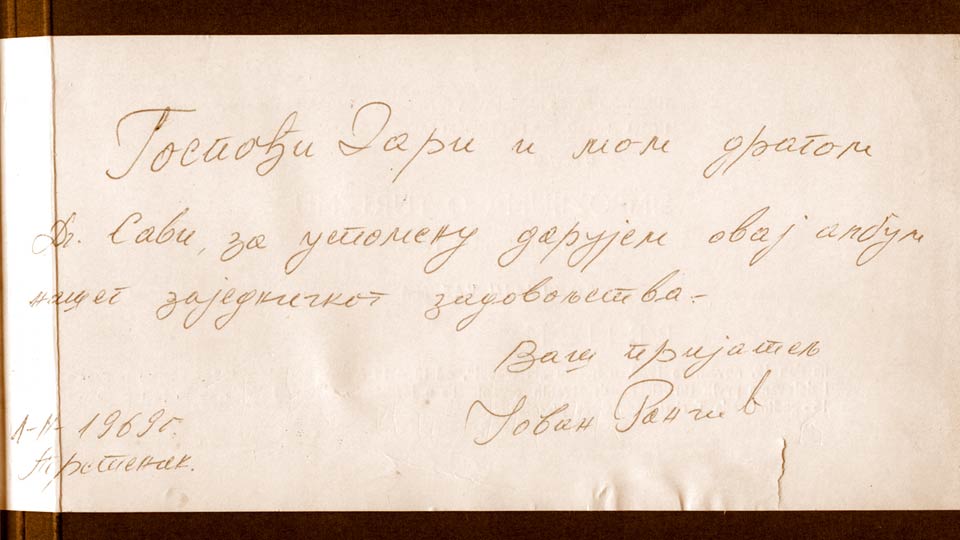 Госпођи Дари и мом драгом
Др. Сави, за успомену дарујем овај албум
нашег заједничког задовољства.-
Ваш пријатељ
Јован
1969г.